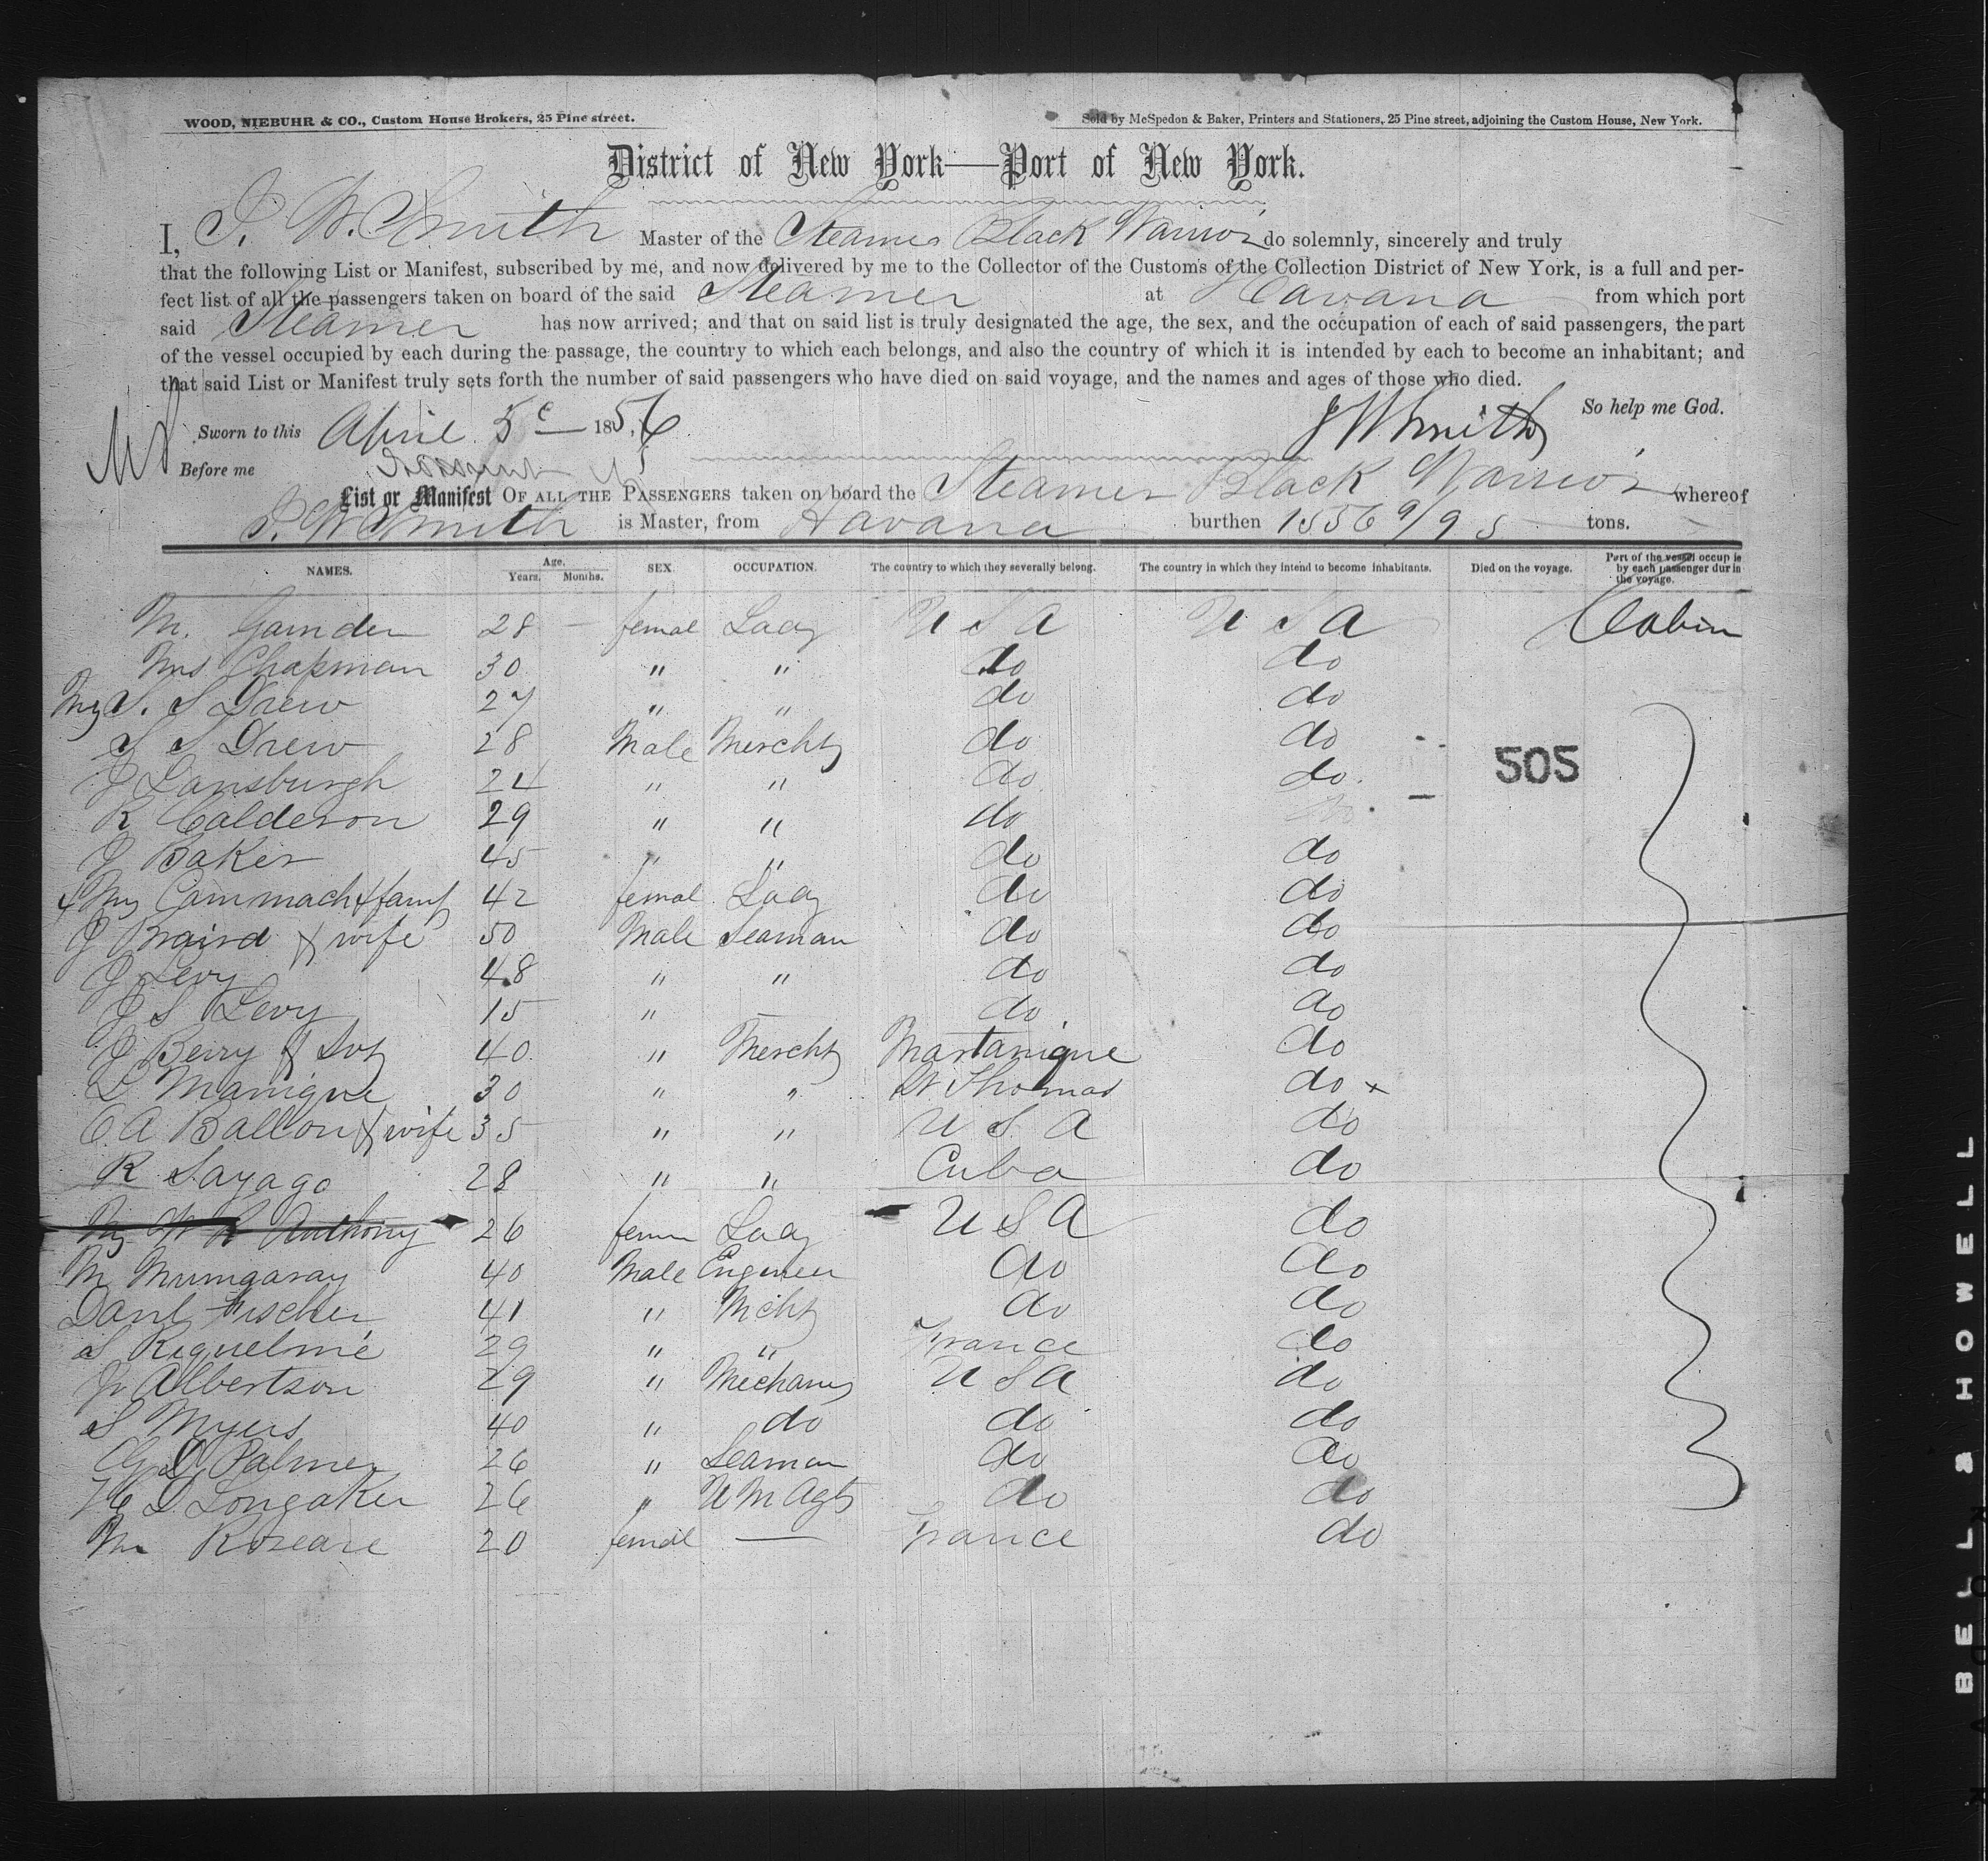 WOOD, NIEBUHR & CO., Custom House Brokers, 25 Pine street.
Sold by McSpedon & Baker, Printers and Stationers, 25 Pine street, adjoining the Custom House, New York.
District of New York—Port of New York.
I, J. W. Smith Master of the Steamer Black Warrior do solemnly, sincerely and truly
that the following List or Manifest, subscribed by me, and now delivered by me to the Collector of the Customs of the Collection District of New York, is a full and per-
fect list of all the passengers taken on board of the said Steamer at Havana from which port
said Steamer has now arrived; and that on said list is truly designated the age, the sex, and the occupation of each of said passengers, the part
of the vessel occupied by each during the passage, the country to which each belongs, and also the country of which it is intended by each to become an inhabitant; and
that said List or Manifest truly sets forth the number of said passengers who have died on said voyage, and the names and ages of those who died.
So help me God.
Sworn to this April 5 1856 J W Smith
Before me
List or Manifest OF ALL THE PASSENGERS taken on board the Steamer Black Warrior whereof
J. W Smith is Master, from Havana burthen 1556 9/95 tons.
NAMES. Age. Years. Months. SEX. OCCUPATION. The country to which they severally belong. The country in which they intend to become inhabitants. Died on the voyage. Part of the vessel occup ie by each passenger dur in the voyage.
M. 28 — femal Lady U S A U S A Cabin
Mrs Chapman 30 " " do do
S. S Drew 27 " " do do
S S Drew 28 Male Mercht do do
505
J Lansburgh 24 " " do do.
R Calderon 29 " " do
J Baker 45 " " do do
Cammach & famy 42 femal Lady do do
J Baird & wife 50 Male Seaman do do
J Levy 48 " " do do
J S Levy 15 " — do do
J Berry & 40 " Mercht Martanique do
D Manique 30 " " St Thomas do x
C A Ballon & wife 35 " " U S A do
R Sayago 28 " " Cuba do
Anthony 26 Lady U S A do
M Mumgaray 40 Male Engineer do do
Danl Fischer 41 " Mcht do do
S Riquelmé 29 " " France do
Jr Albertson 29 " U S A do
S Myers 40 " do do do
D Palmer 26 " Seaman do do
H D Longaker 26 " U M Agt do do
Roseare 20 femal — France do
BELL & HOWELL